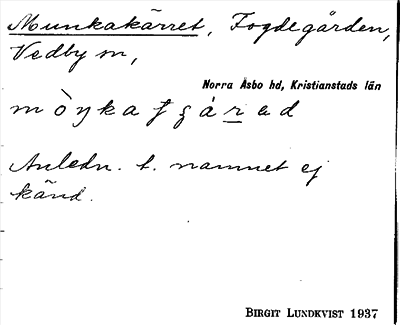 Munkakärret, Fogdegården,
Vedby sn,
Norra Åsbo hd, Kristianstads län
Anledn. t. namnet ej
känd.
BIRGIT LUNDKVIST 1937